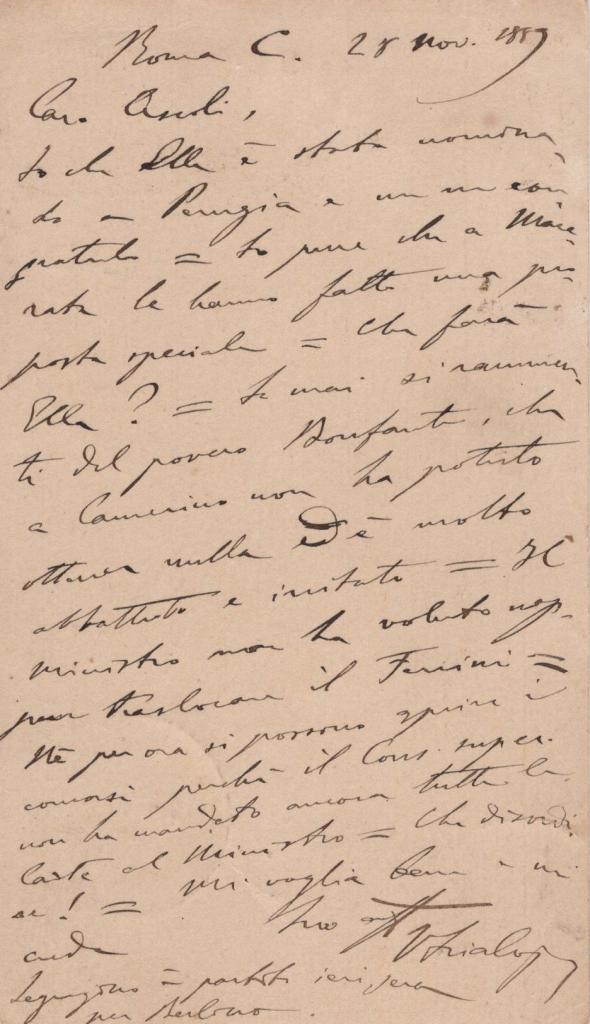 Roma C. 28 nov. 1889
Caro Ascoli,
So che Ella è stata nomina-
to a Perugia e me ne con
gratulo = So pure che a Mace-
rata le hanno fatto una pro-
posta speciale = Che farà
Ella? = Se mai si rammen-
ti del povero Bonfante, che
a Camerino non ha potuto
ottener nulla ed è molto
abbattuto e irritato = Il
ministro non ha voluto nep-
pur traslocare il Ferrini =
Nè per ora si possono aprire i
concorsi perchè il Cons. super.
non ha mandato ancora tutte le
carte al Ministro = Che disordi-
ne! = Mi voglia bene e mi
creda
Suo aff
V. Scialoja
partiti ieri sera
per Berlino.